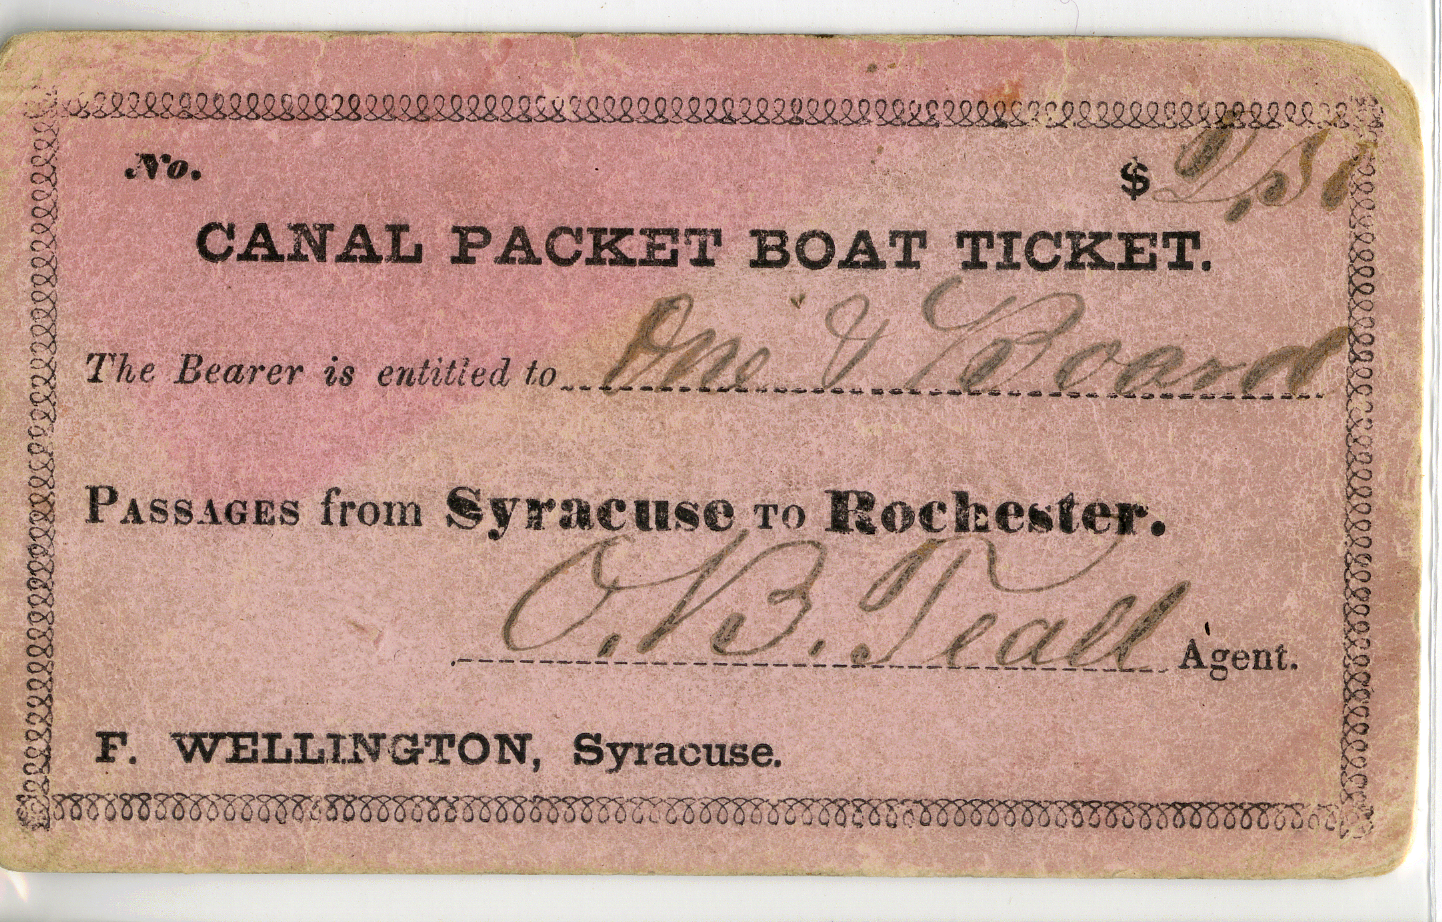 No.
$ 2,50
CANAL PACKET BOAT TICKET.
The Bearer is entitled to One & Board
PASSAGES from Syracuse TO Rochester.
O. B. Teall Agent.
F. WELLINGTON, Syracuse.